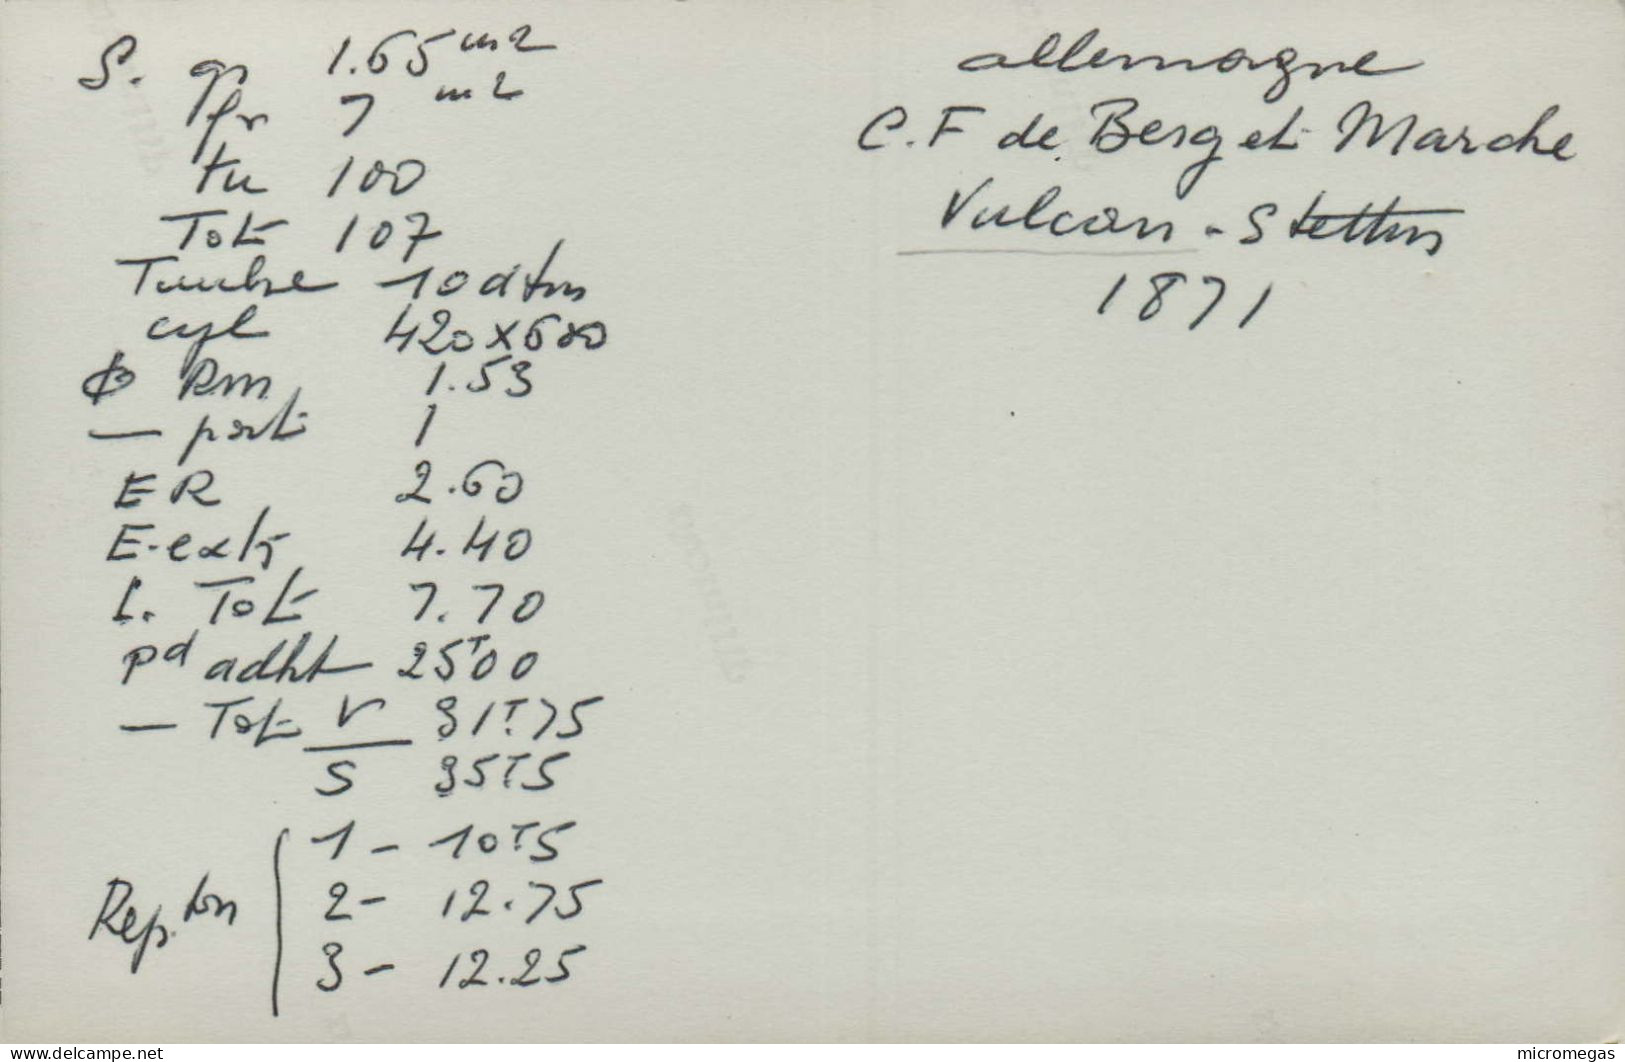 S. gr 1.65 m2
fr 7 m2
tu 100
Tot 107
Timbre 10 atm
cyl 420x600
Φ Rm 1.53
— port 1
ER 2.60
E-ext 4.40
L. Tot 7.70
Pd adht 25T00
— Tot V 31T.75
S 35T5
Rep.ton
1 - 10T5
2 - 12.75
3 - 12.25
allemagne
C.F de Berg et Marche
Vulcan - Stettin
1871
micromegas